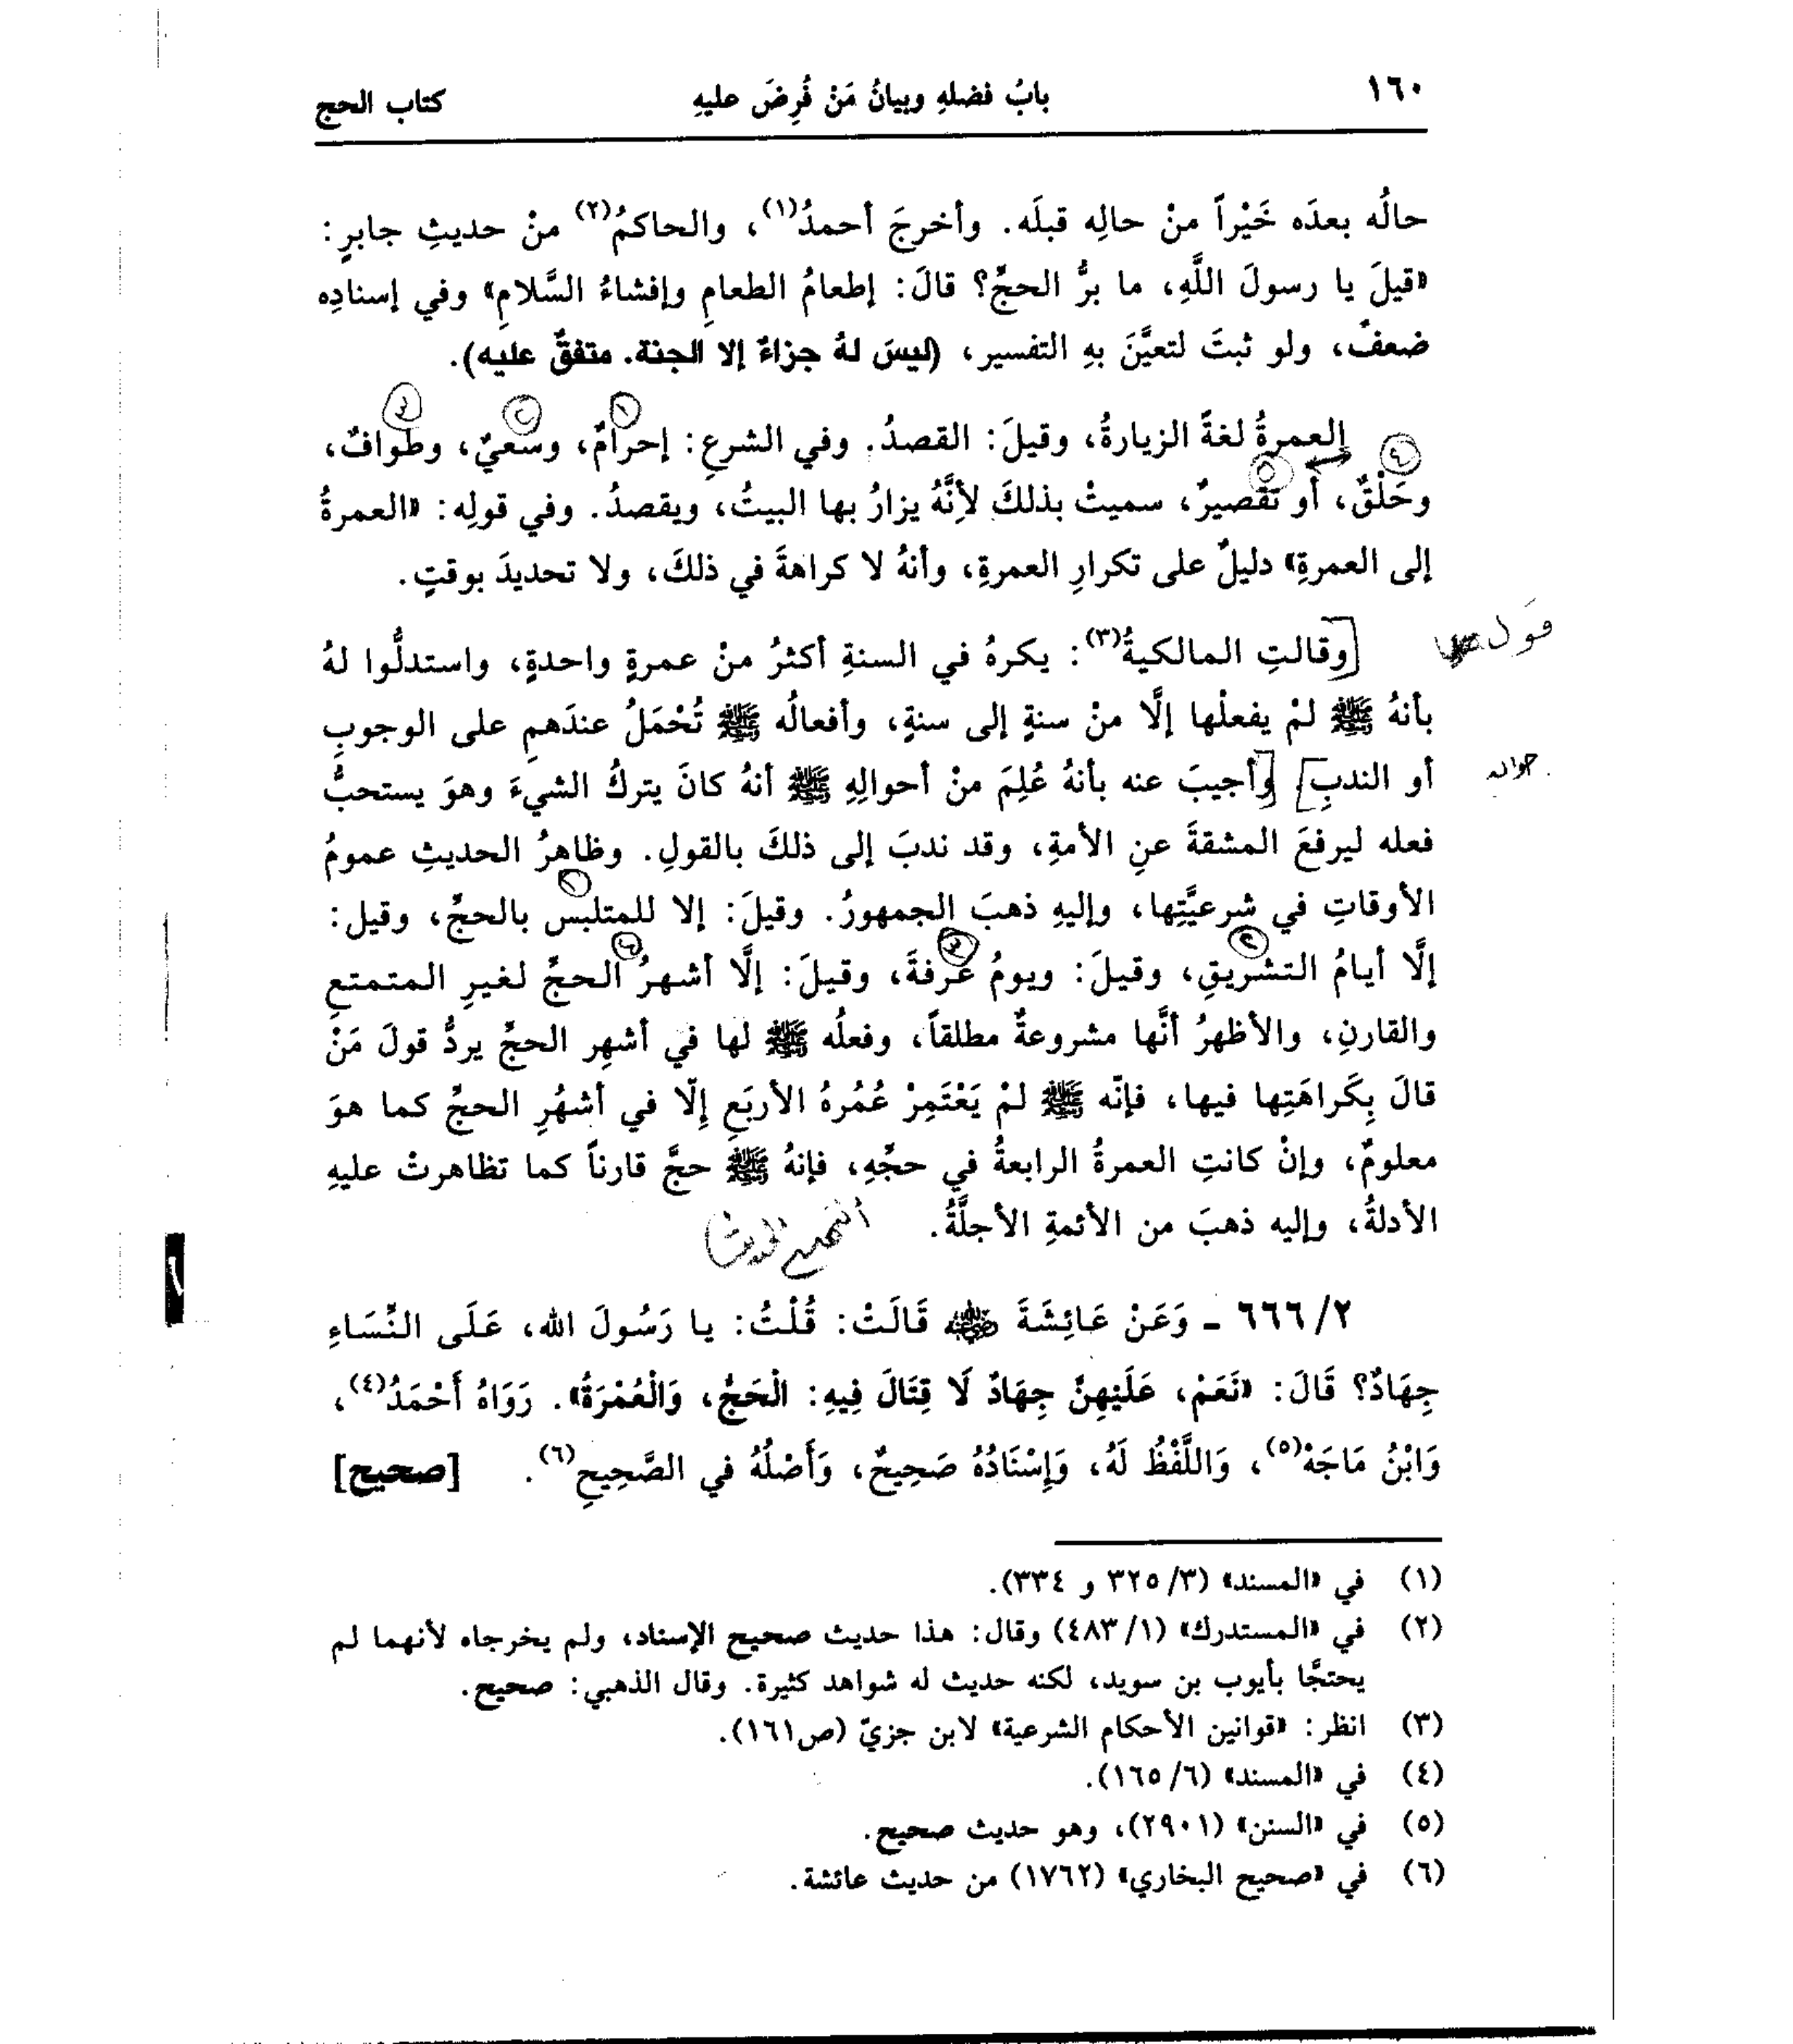 ١٦٠ بابُ فضلهِ وبيانُ مَنْ فُرِضَ عليهِ كتاب الحج
حالُه بعدَه خَيْراً منْ حالِه قبلَه. وأخرجَ أحمدُ(١)، والحاكمُ(٢) منْ حديثِ جابرٍ:
«قيلَ يا رسولَ اللَّهِ، ما برُّ الحجِّ؟ قالَ: إطعامُ الطعامِ وإفشاءُ السَّلامِ» وفي إسنادِه
ضعفٌ، ولو ثبتَ لتعيَّنَ بهِ التفسير، (ليسَ لهُ جزاءٌ إلا الجنة. متفقٌ عليه).
العمرةُ لغةً الزيارةُ، وقيلَ: القصدُ. وفي الشرعِ: إحرامٌ، وسعيٌ، وطوافٌ،
وحَلْقٌ، أو تقصيرٌ، سميتْ بذلكَ لأنَّهُ يزارُ بها البيتُ، ويقصدُ. وفي قولِه: «العمرةُ
إلى العمرةِ» دليلٌ على تكرارِ العمرةِ، وأنهُ لا كراهةَ في ذلكَ، ولا تحديدَ بوقتٍ.
[وقالتِ المالكيةُ(٣): يكرهُ في السنةِ أكثرُ منْ عمرةٍ واحدةٍ، واستدلُّوا لهُ
قول
بأنهُ ﷺ لمْ يفعلْها إلَّا منْ سنةٍ إلى سنةٍ، وأفعالُه ﷺ تُحْمَلُ عندَهم على الوجوبِ
أو الندبِ] [وأجيبَ عنه بأنهُ عُلِمَ منْ أحوالِهِ ﷺ أنهُ كانَ يتركُ الشيءَ وهوَ يستحبُّ
فعله ليرفعَ المشقةَ عنِ الأمةِ، وقد ندبَ إلى ذلكَ بالقولِ. وظاهرُ الحديثِ عمومُ
الأوقاتِ في شرعيَّتِها، وإليهِ ذهبَ الجمهورُ. وقيلَ: إلا للمتلبس بالحجِّ، وقيل:
إلَّا أيامُ التشريقِ، وقيلَ: ويومُ عرفةَ، وقيلَ: إلَّا أشهرُ الحجِّ لغيرِ المتمتعِ
والقارنِ، والأظهرُ أنَّها مشروعةٌ مطلقاً، وفعلُه ﷺ لها في أشهرِ الحجِّ يردُّ قولَ مَنْ
قالَ بِكَراهَتِها فيها، فإنّه ﷺ لمْ يَعْتَمِرْ عُمُرهُ الأربَعِ إلّا في أشهُرِ الحجِّ كما هوَ
معلومٌ، وإنْ كانتِ العمرةُ الرابعةُ في حجِّهِ، فإنهُ ﷺ حجَّ قارناً كما تظاهرتْ عليهِ
الأدلةُ، وإليه ذهبَ من الأئمةِ الأجلَّةُ.
٢/ ٦٦٦ - وَعَنْ عَائِشَةَ رضي الله عنها قَالَتْ: قُلْتُ: يا رَسُولَ الله، عَلَى النِّسَاءِ
جِهَادٌ؟ قَالَ: «نَعَمْ، عَلَيْهِنَّ جِهَادٌ لَا قِتَالَ فِيهِ: الْحَجُّ، وَالْعُمْرَةُ». رَوَاهُ أَحْمَدُ(٤)،
وَابْنُ مَاجَهْ(٥)، وَاللَّفْظُ لَهُ، وَإِسْنَادُهُ صَحِيحٌ، وَأَصْلُهُ في الصَّحِيحِ(٦). [صحيح]
(١) في «المسند» (٣/ ٣٢٥ و ٣٣٤).
(٢) في «المستدرك» (١/ ٤٨٣) وقال: هذا حديث صحيح الإسناد، ولم يخرجاه لأنهما لم
يحتجَّا بأيوب بن سويد، لكنه حديث له شواهد كثيرة. وقال الذهبي: صحيح.
(٣) انظر: «قوانين الأحكام الشرعية» لابن جزيّ (ص١٦١).
(٤) في «المسند» (٦/ ١٦٥).
(٥) في «السنن» (٢٩٠١)، وهو حديث صحيح.
(٦) في «صحيح البخاري» (١٧٦٢) من حديث عائشة.